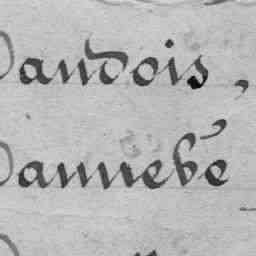 Dandois,
Dannebé